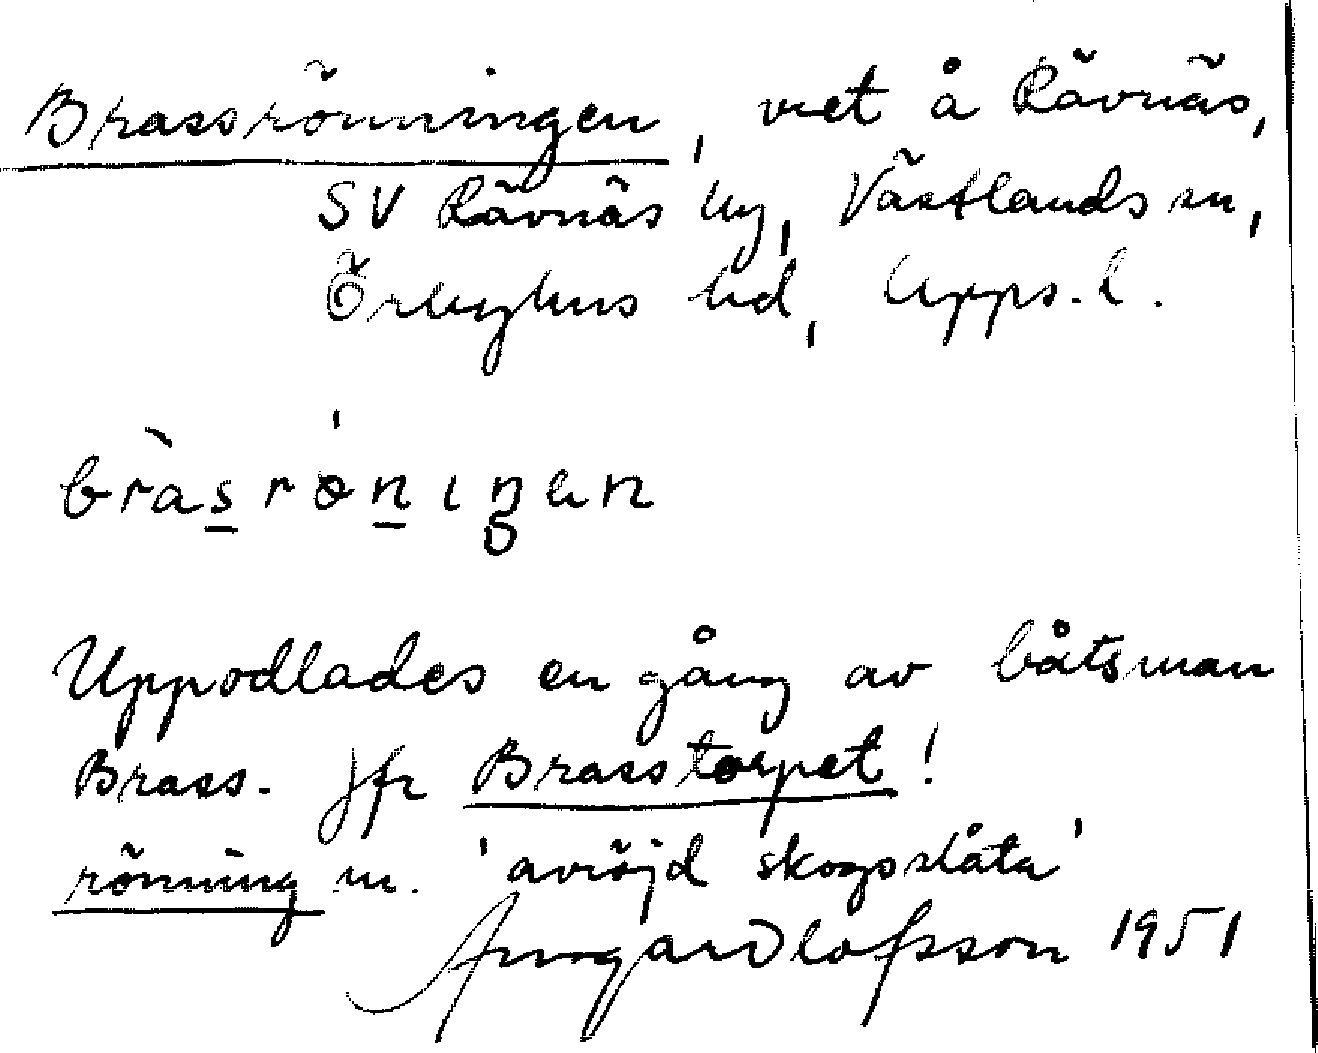 Brassrönningen, vret å Rävnäs,
SV Rävnäs by, Västlands sn,
Örbyhus hd, Upps. l.
bràsrǿniŋen
Uppodlades en gång av båtsman
Brass. Jfr Brasstorpet!
rönning m. 'avröjd skogsslåta'
Olofsson 1951